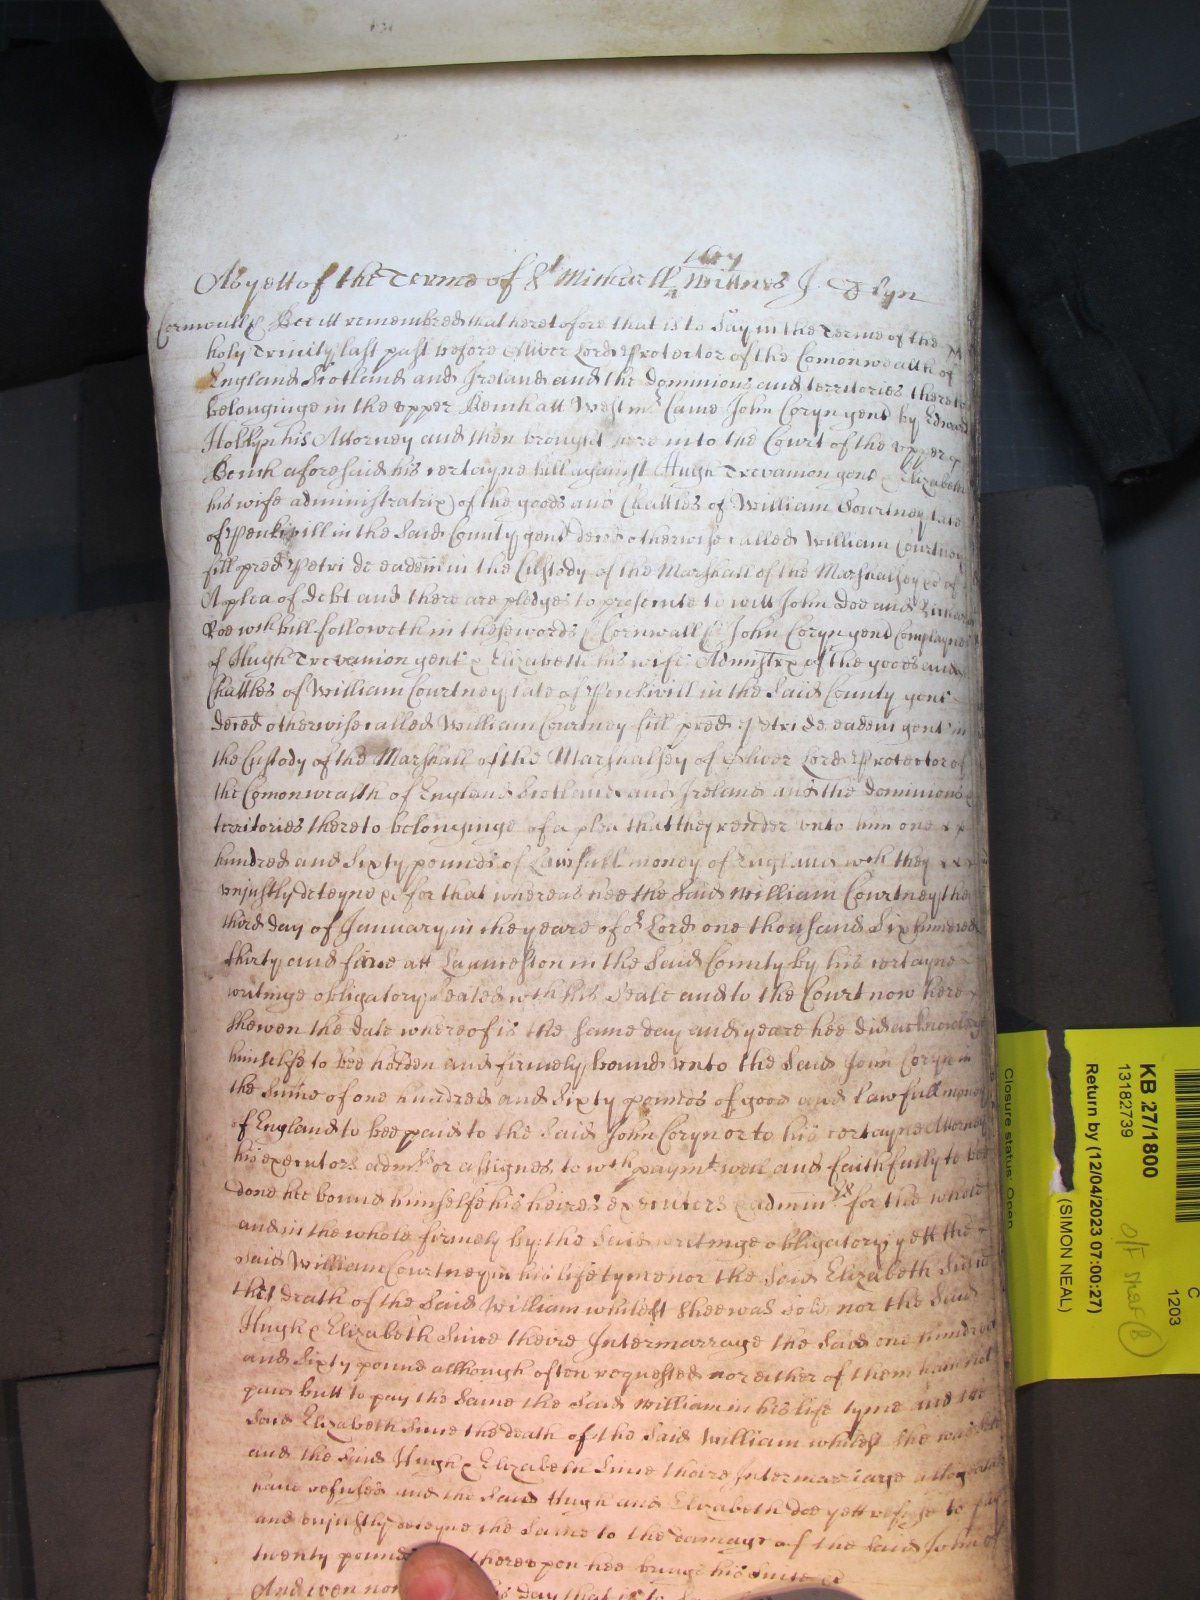 1657
As yett of the Terme of St Michaell Wittnes J. Glyn
Cornwall ss Bee itt remembred that heretofore that is to Say in the Terme of the
holy Trinity last past before Oliver Lord Protector of the Comonwealth of
England Scotland and Ireland and the dominions and territories thereto
belonginge in the vpper Bench att Westmr Came John Coryn gent by Edward
Hoblyn his Attorney and then brought here into the Court of the vpper
Bench aforesaid his certayne bill against Hugh Trevanion gent & Elizabeth
his wife administratrix of the goods and Chattles of William Courtney late
of Penkivill in the Said County gent deced otherwise called William Courtney
fill pred Petri de eadem in the Custody of the Marshall of the Marshalsey &c of
A plea of debt and there are pledges to prosecute to witt John Doe and Richard
Roe wch bill followeth in these words Cornwall ss John Coryn gent Complaynes
of Hugh Trevanion gent & Elizabeth his wife Admistrx of the goods and
Chattles of William Courtney late of Penkivill in the Said County gent
deced otherwise called William Courtney fill pred Petri de eadem gent in
the Custody of the Marshall of the Marshalsey of Oliver Lord Protector of
the Comonwealth of England Scotland and Ireland and the dominions &
territories thereto belonginge of a plea that they render vnto him one
hundred and Sixty pounds of Lawfull money of England wch they
vnjustly deteyne &c for that whereas hee the Said William Courtney the
third day of January in the yeare of or Lord one thousand Six hundred
thirty and five att Launceston in the Said County by his certayne
writinge obligatory Sealed wth his Seale and to the Court now here
shewen the date whereof is the same day and yeare hee did acknowledge
himselfe to bee holden and firmely bound vnto the Said John Coryn in
the Sume of one hundred and Sixty pounds of good and Lawfull money
of England to bee paid to the Said John Coryn or to his certayne Attorney
his executors admrs or assignes to wch paymt well and faithfully to bee
done hee bound himselfe his heires executors & adminrs for the whole
and in the whole firmely by the Said writinge obligatory yett the
Said William Courtney in his life tyme nor the Said Elizabeth Since
the death of the Said William whilest shee was sole nor the Said
Hugh & Elizabeth Since theire Intermarriage the Said one hundred
and Sixty pound although often requested nor either of them have not
paid butt to pay the Same the Said William in his life tyme and the
Said Elizabeth Since the death of the Said William whilest she was sole
and the Said Hugh & Elizabeth Since theire Intermarriage altogether
have refused and the Said Hugh and Elizabeth doe yett refuse to pay
and vnjustly deteyne the Same to the damage of the Said John of
twenty pound thereupon hee brings his Suite &c
And even now his day that is to
KB 27/1800
13182739
Return by (12/04/2023 07:00:27)
(SIMON NEAL)
Closure status: Open
C
1203